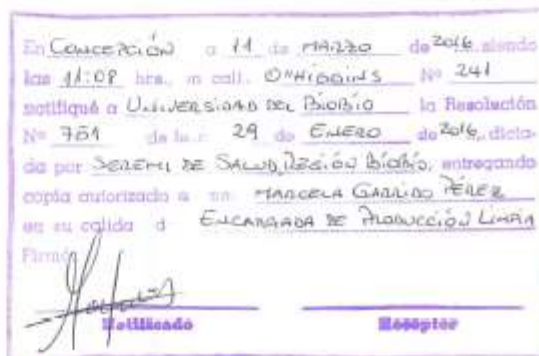 En CONCEPCIÓN a 11 de MARZO de 2016, siendo
las 11:08 hrs., en call. O'HIGGINS Nº 241
notifiqué a UNIVERSIDAD DEL BIOBIO la Resolución
Nº 751 de fec. 29 de ENERO de 2016, dicta-
da por SEREMI DE SALUD, REGIÓN BIOBIO, entregando
copia autorizada a MARCELA GARRIDO PÉREZ
en su calida d ENCARGADA DE PRODUCCIÓN LIMPIA
Firmó
Notificado Receptor